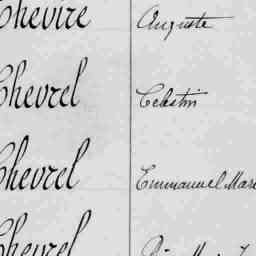 Chevire Auguste
Chevrel Celestin
Chevrel Emmanuel Marie
Chevrel